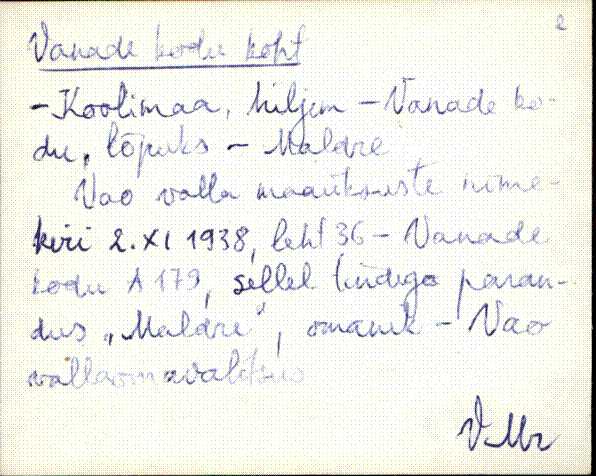 e
Vanade kodu koht
- Koolimaa, hiljem - Vanade ko-
du, lõpuks - Maldre
Vao valla maaüksuste nime-
kiri 2. XI 1938, leht 36 - Vanade
kodu A 179, sellel tindiga paran-
dus "Maldre", omanik - Vao
vallaomavalitsus
V. Mr